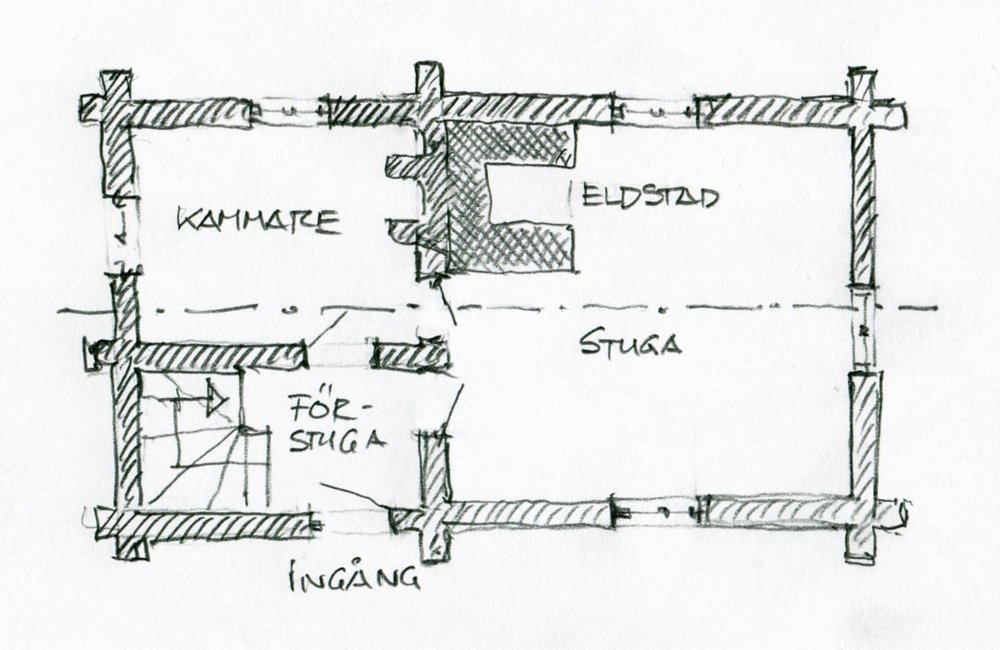 KAMMARE
ELDSTAD
STUGA
FÖR-
STUGA
INGÅNG